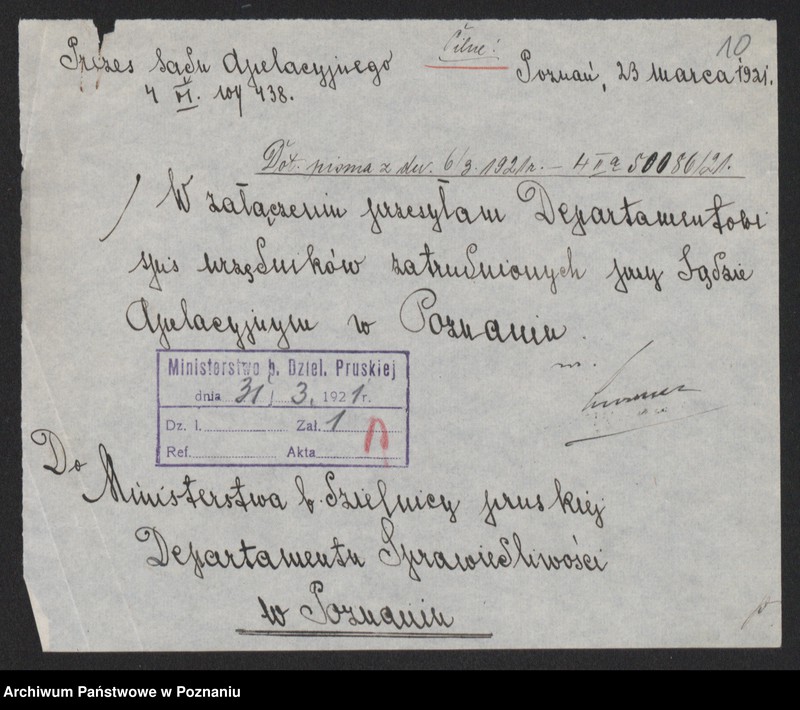 10
Pilne!
Prezes Sądu Apelacyjnego
Poznań, 23 marca 1921.
4 VI. 104 438.
Dot. pisma z dn. 6/3. 1921 r. – 4 II a 50086/21.
W załączeniu przesyłam Departamentowi
spis urzędników zatrudnionych przy Sądzie
Apelacyjnym w Poznaniu.
Ministerstwo b. Dziel. Pruskiej
dnia 31/ 3. 1921 r.
Dz. l. Zał. 1
Ref. Akta
Do
Ministerstwa b. Dzielnicy pruskiej
Departamentu Sprawiedliwości
w Poznaniu
Archiwum Państwowe w Poznaniu